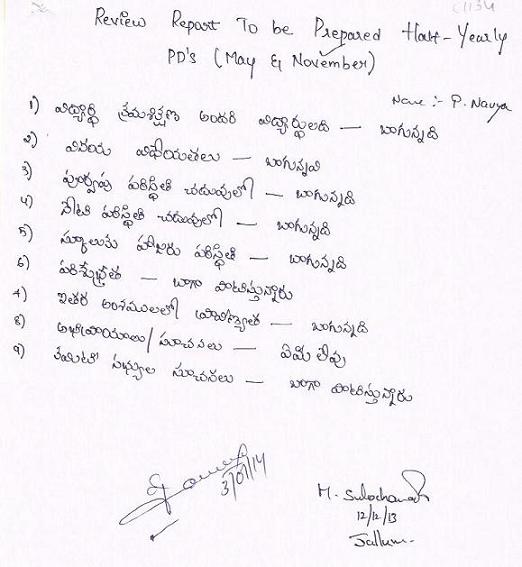 C1134
Review Report To be Prepared Half-Yearly
PD's (May & November)
Name :- P. Navya
1) విద్యార్థి క్రమశిక్షణ అందరి విద్యార్థులది — బాగున్నది
2) వినయ విధేయతలు — బాగున్నవి
3) పూర్వపు పరిస్థితి చదువులో — బాగున్నది
4) నేటి పరిస్థితి చదువులో — బాగున్నది
5) స్కూలుకు హాజరు పరిస్థితి — బాగున్నది
6) పరిశుభ్రత — బాగా పాటిస్తున్నారు
7) ఇతర అంశములలో ప్రావీణ్యత — బాగున్నది
8) అభిప్రాయాలు/సూచనలు — ఏమీ లేవు
9) కమిటి సభ్యుల సూచనలు — బాగా పాటిస్తున్నారు
3/01/14
M. Sulochana
12/12/13